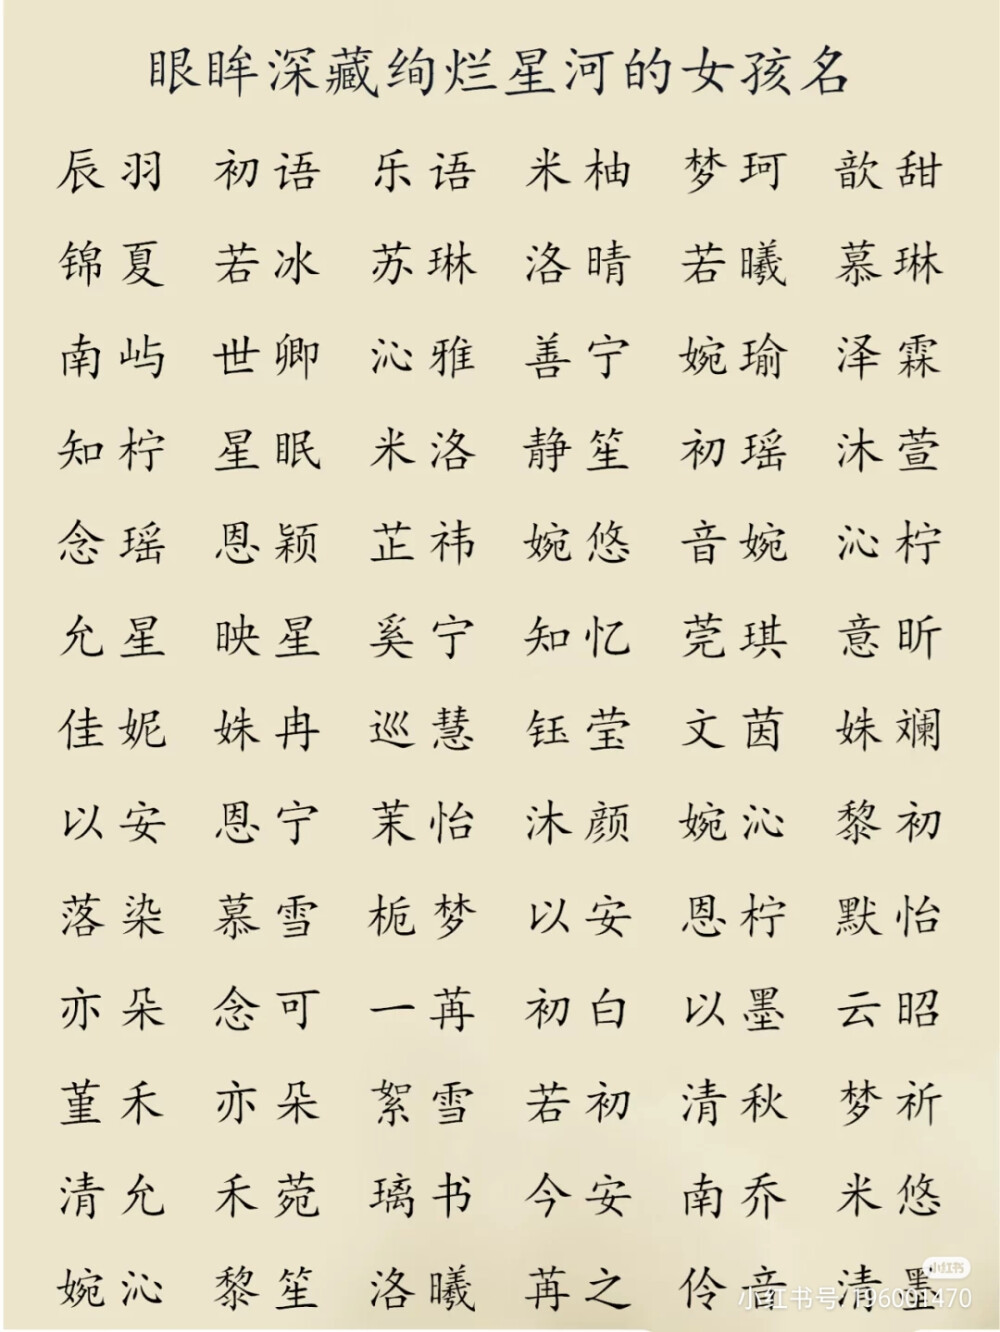 眼眸深藏绚烂星河的女孩名
辰羽 初语 乐语 米柚 梦珂 歆甜
锦夏 若冰 苏琳 洛晴 若曦 慕琳
南屿 世卿 沁雅 善宁 婉瑜 泽霖
知柠 星眠 米洛 静笙 初瑶 沐萱
念瑶 恩颖 芷祎 婉悠 音婉 沁柠
允星 映星 奚宁 知忆 莞琪 意昕
佳妮 姝冉 巡慧 钰莹 文茵 姝斓
以安 恩宁 茉怡 沐颜 婉沁 黎初
落染 慕雪 栀梦 以安 恩柠 默怡
亦朵 念可 一苒 初白 以墨 云昭
堇禾 亦朵 絮雪 若初 清秋 梦祈
清允 禾菀 璃书 今安 南乔 米悠
婉沁 黎笙 洛曦 苒之 伶音 清墨
小红书
小红书号:196001470